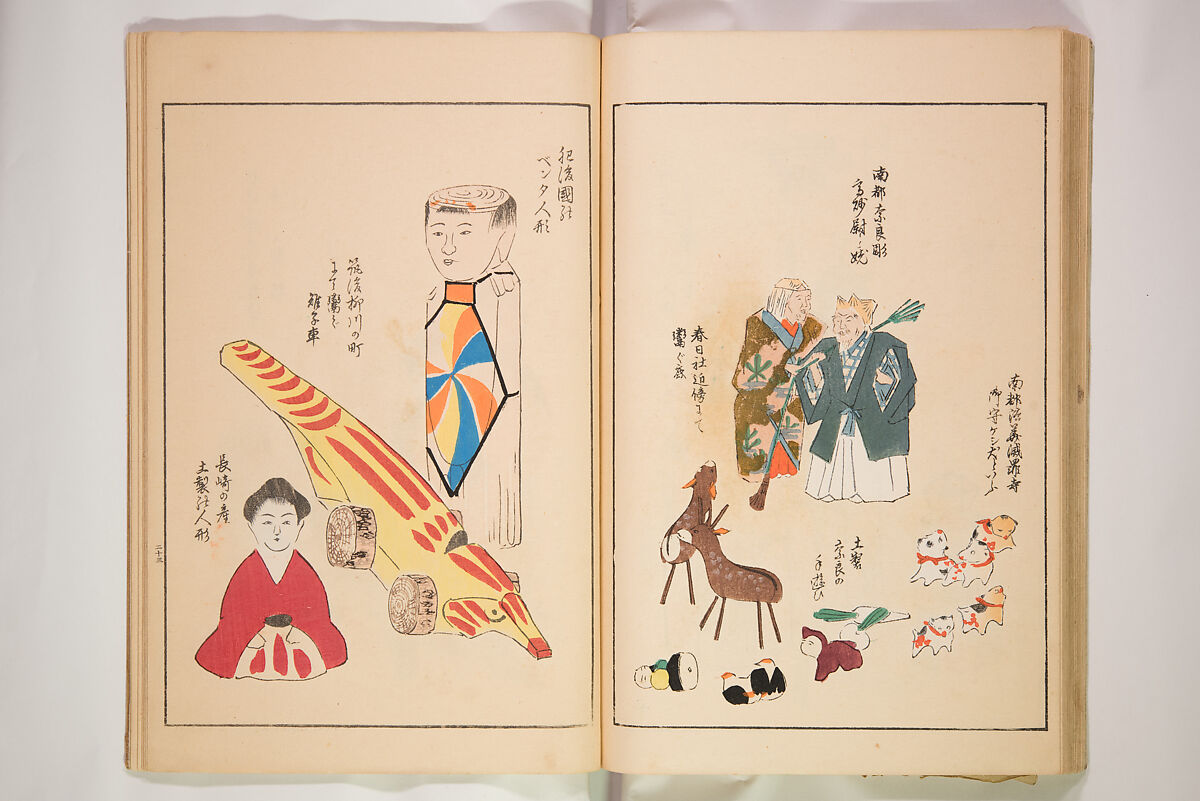 南都法華滅罪寺
御守ケシ犬といふ
南都奈良彫
高砂尉ト姥
春日社近傍にて
鬻ぐ鹿
土製
奈良の
手遊び
肥後國の
ベンタ人形
筑後柳川の町
にて鬻ぐ
雉子車
長崎の産
土製の人形
二十三